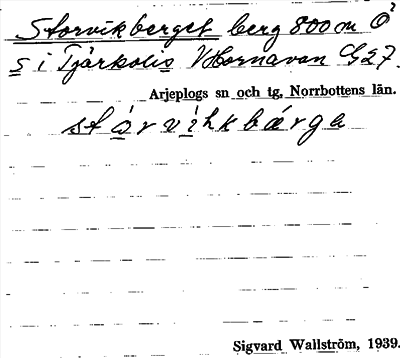 Storvikberget berg 800 m Ö
S i Tjärkolis V Hornavan G27.
Arjeplogs sn och tg, Norrbottens län.
stårvihkbærga
Sigvard Wallström, 1939.